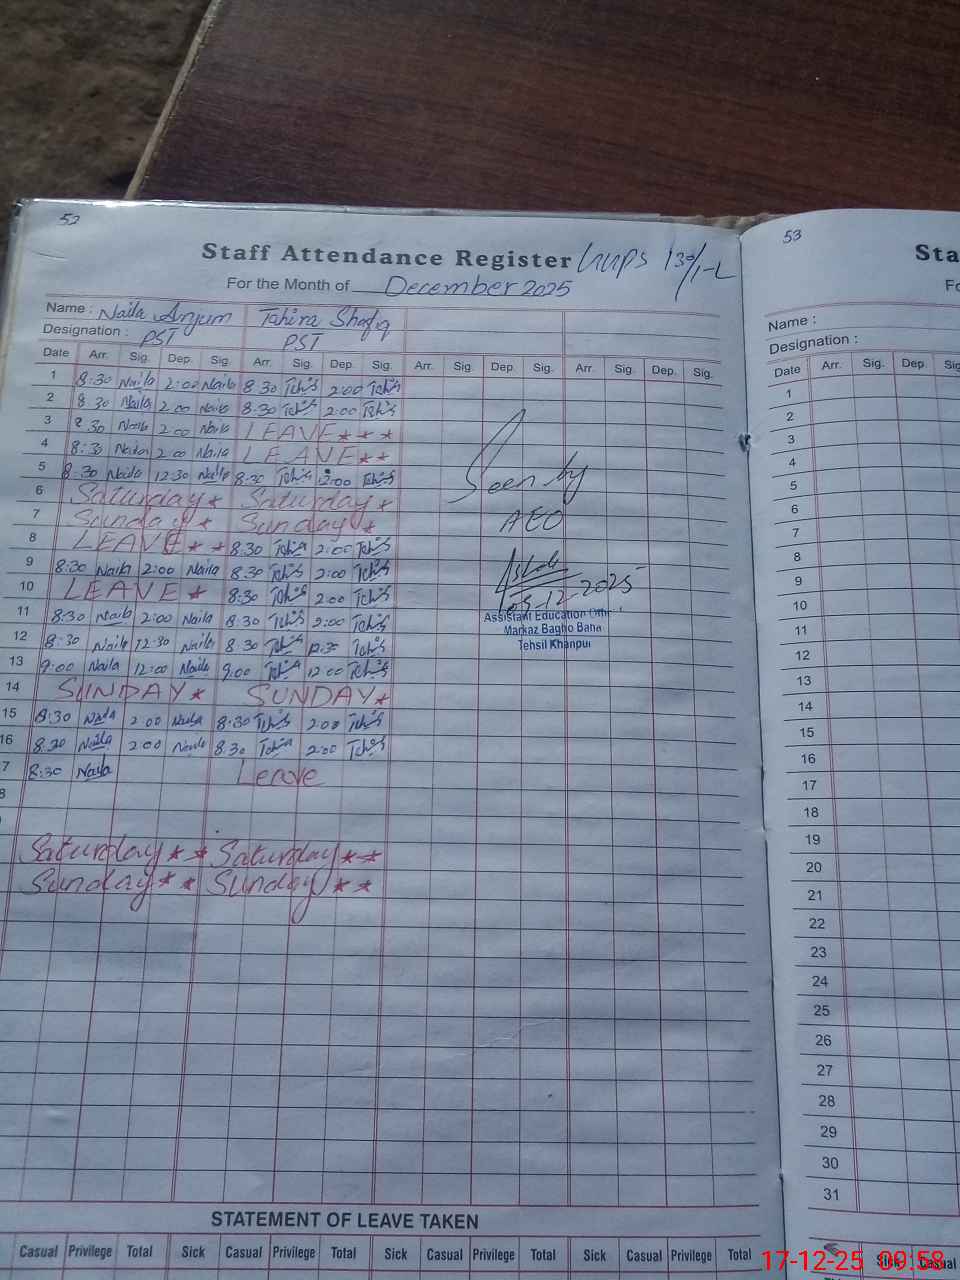 52
53
Staff Attendance Register GGPS 130/1-L
For the Month of December 2025
Name : Naila Anjum Tahira Shafiq
Designation : PST PST
Date Arr. Sig. Dep. Sig. Arr. Sig. Dep. Sig. Arr. Sig. Dep. Sig. Arr. Sig. Dep. Sig.
1 8:30 Naila 2:00 Naila 8:30 2:00
2 8:30 Naila 2:00 Naila 8:30 2:00
3 8:30 Naila 2:00 Naila LEAVE***
4 8:30 Naila 2:00 Naila LEAVE**
5 8:30 Naila 12:30 Naila 8:30 :00
6 Saturday* Saturday*
7 Sunday* Sunday*
8 LEAVE** 8:30 2:00
9 8:30 Naila 2:00 Naila 8:30 2:00
10 LEAVE* 8:30 2:00
11 8:30 Naila 2:00 Naila 8:30 2:00
12 8:30 Naila 12:30 Naila 8:30 12:30
13 9:00 Naila 12:00 Naila 9:00 12:00
14 SUNDAY* SUNDAY*
15 8:30 Naila 2:00 Naila 8:30 2:00
16 8:30 Naila 2:00 Naila 8:30 2:00
7 8:30 Naila Leave
8
Saturday** Saturday**
Sunday** Sunday**
Seen by
AEO
05-12-2025
Assistant Education
Markaz Bagho Bahar
Tehsil Khanpur
STATEMENT OF LEAVE TAKEN
Casual Privilege Total Sick Casual Privilege Total Sick Casual Privilege Total Sick Casual Privilege Total
Sta
Fo
Name :
Designation :
Date Arr. Sig. Dep. Sig
1
2
3
4
5
6
7
8
9
10
11
12
13
14
15
16
17
18
19
20
21
22
23
24
25
26
27
28
29
30
31
Sick Casual
17-12-25 09:58